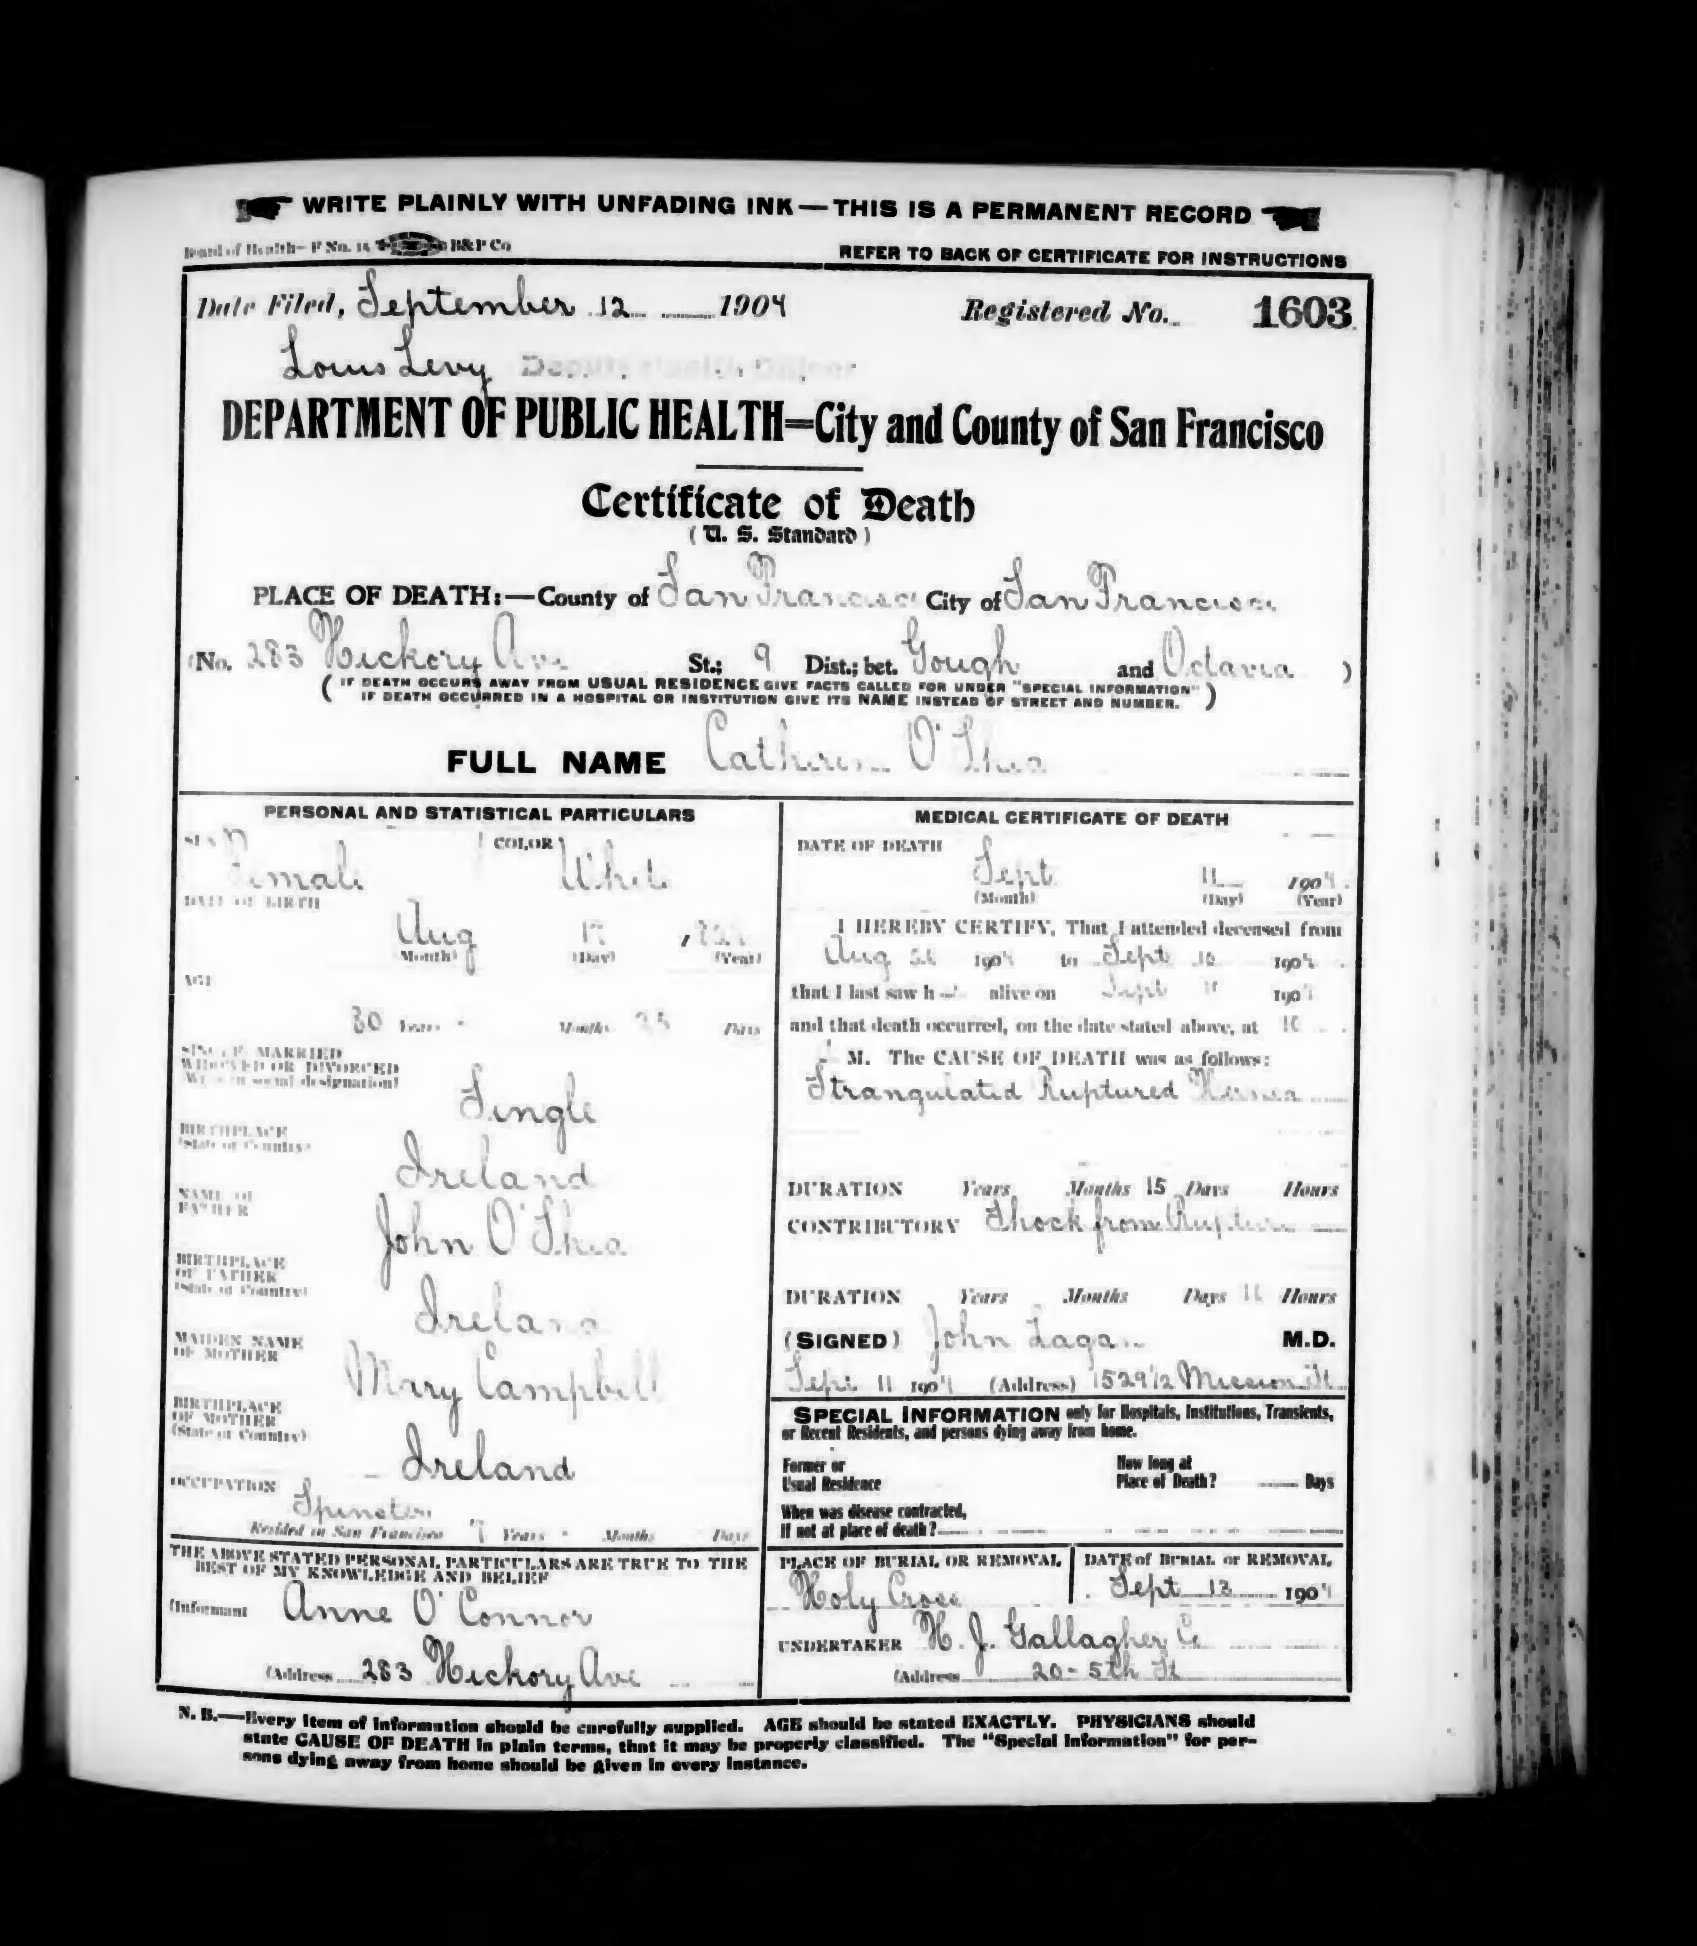 WRITE PLAINLY WITH UNFADING INK—THIS IS A PERMANENT RECORD
Board of Health—F No. B&P Co
REFER TO BACK OF CERTIFICATE FOR INSTRUCTIONS
Date Filed, September 12 1904 Registered No. 1603
Louis Levy
DEPARTMENT OF PUBLIC HEALTH=City and County of San Francisco
Certificate of Death
(U. S. Standard)
PLACE OF DEATH:—County of San Francisco City of San Francisco
(No. 283 Hickory Ave St.; 9 Dist.; bet. Gough and Octavia )
(IF DEATH OCCURS AWAY FROM USUAL RESIDENCE GIVE FACTS CALLED FOR UNDER "SPECIAL INFORMATION"
IF DEATH OCCURRED IN A HOSPITAL OR INSTITUTION GIVE ITS NAME INSTEAD OF STREET AND NUMBER.)
FULL NAME Catherine O'Shea
PERSONAL AND STATISTICAL PARTICULARS
SEX COLOR
Female White
DATE OF BIRTH
Aug
(Month) (Day) (Year)
AGE
30 Years Months 25 Days
SINGLE, MARRIED
WIDOWED OR DIVORCED
(Write in social designation)
Single
BIRTHPLACE
(State or Country)
Ireland
NAME OF
FATHER
John O'Shea
BIRTHPLACE
OF FATHER
(State or Country)
Ireland
MAIDEN NAME
OF MOTHER
Mary Campbell
BIRTHPLACE
OF MOTHER
(State or Country)
Ireland
OCCUPATION
Spinster
Resided in San Francisco 7 Years Months Days
THE ABOVE STATED PERSONAL PARTICULARS ARE TRUE TO THE
BEST OF MY KNOWLEDGE AND BELIEF
(Informant Anne O'Connor
(Address 283 Hickory Ave
MEDICAL CERTIFICATE OF DEATH
DATE OF DEATH
Sept 11 1904
(Month) (Day) (Year)
I HEREBY CERTIFY, That I attended deceased from
Aug 1904 to Sept 10 1904
that I last saw h alive on Sept 1904
and that death occurred, on the date stated above, at 10
M. The CAUSE OF DEATH was as follows:
Strangulated Ruptured Hernia
DURATION Years Months 15 Days Hours
CONTRIBUTORY Shock from Rupture
DURATION Years Months Days 11 Hours
(SIGNED) John Lagan M.D.
Sept 11 1904 (Address) 1529 1/2 Mission St
SPECIAL INFORMATION only for Hospitals, Institutions, Transients,
or Recent Residents, and persons dying away from home.
Former or
Usual Residence
How long at
Place of Death? Days
When was disease contracted,
If not at place of death?
PLACE OF BURIAL OR REMOVAL
Holy Cross
DATE of BURIAL or REMOVAL
Sept 13 1904
UNDERTAKER H. J. Gallagher Co
(Address 20-5th St
N. B.—Every item of information should be carefully supplied. AGE should be stated EXACTLY. PHYSICIANS should
state CAUSE OF DEATH in plain terms, that it may be properly classified. The "Special Information" for per-
sons dying away from home should be given in every instance.